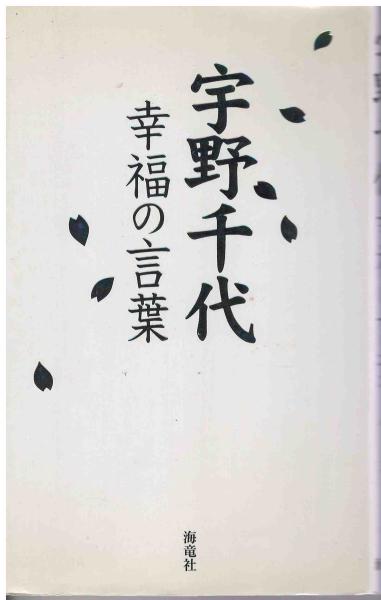 宇野千代
幸福の言葉
海竜社